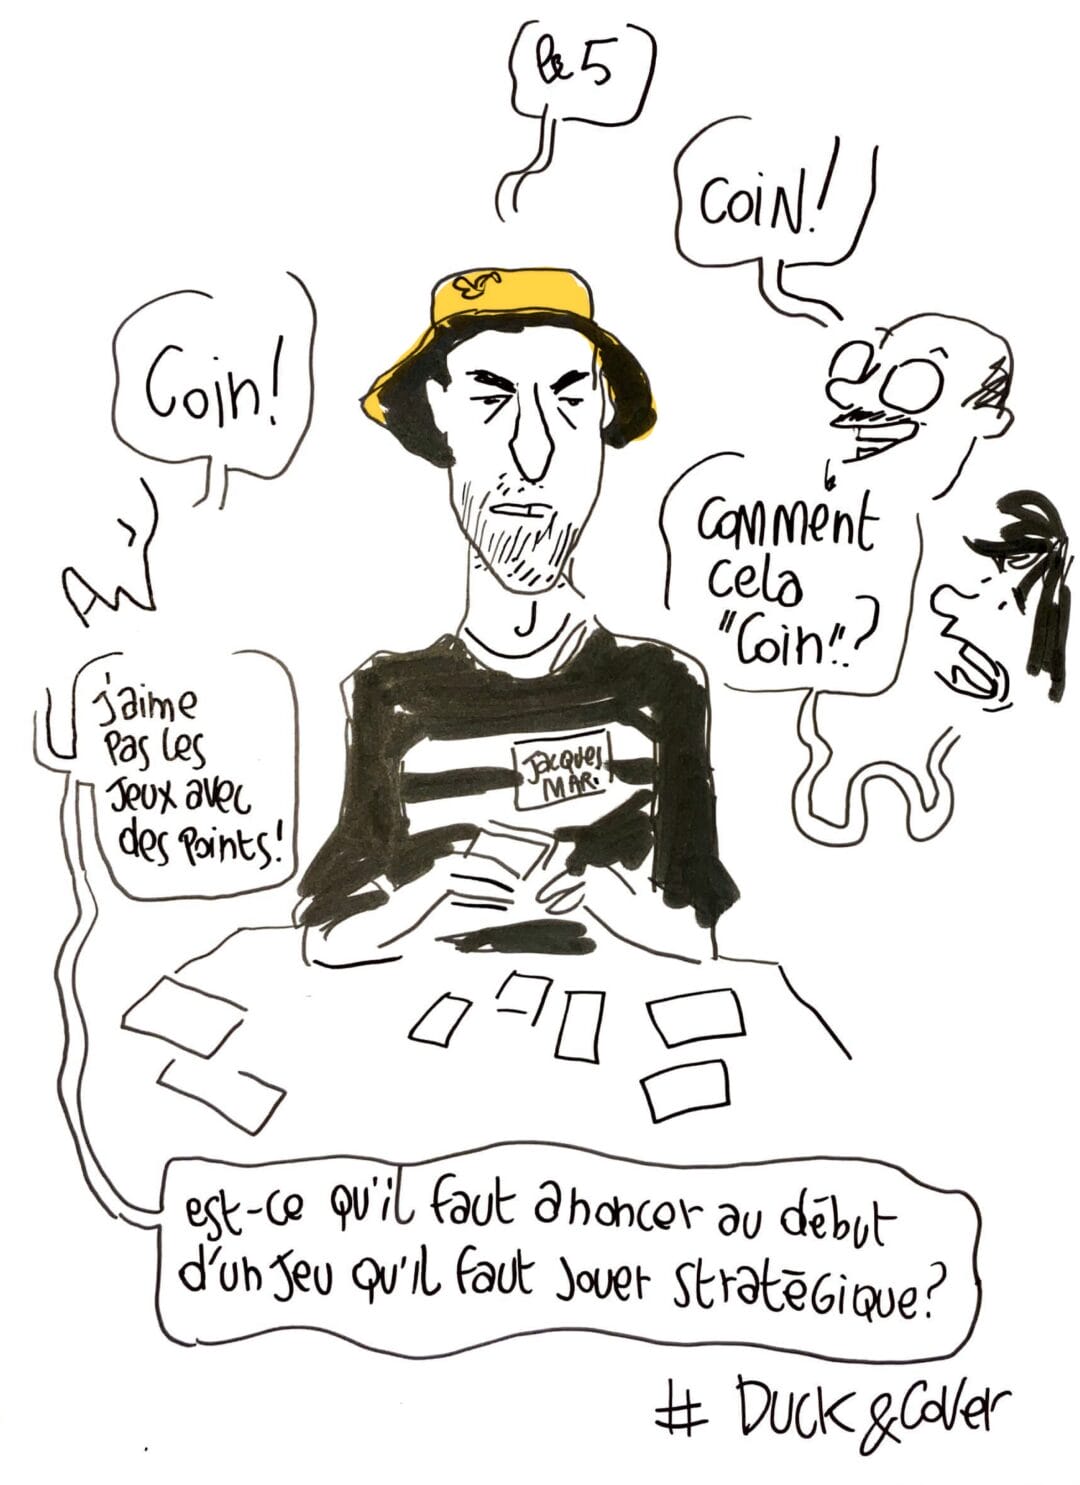 le 5
COiN!
Coin!
Comment
cela
"Coin"!?
j'aime
Pas les
Jeux avec
des Points!
Jacques
MAR.
est-ce qu'il faut anoncer au début
d'un Jeu qu'il faut Jouer stratégique?
# Duck & Cover